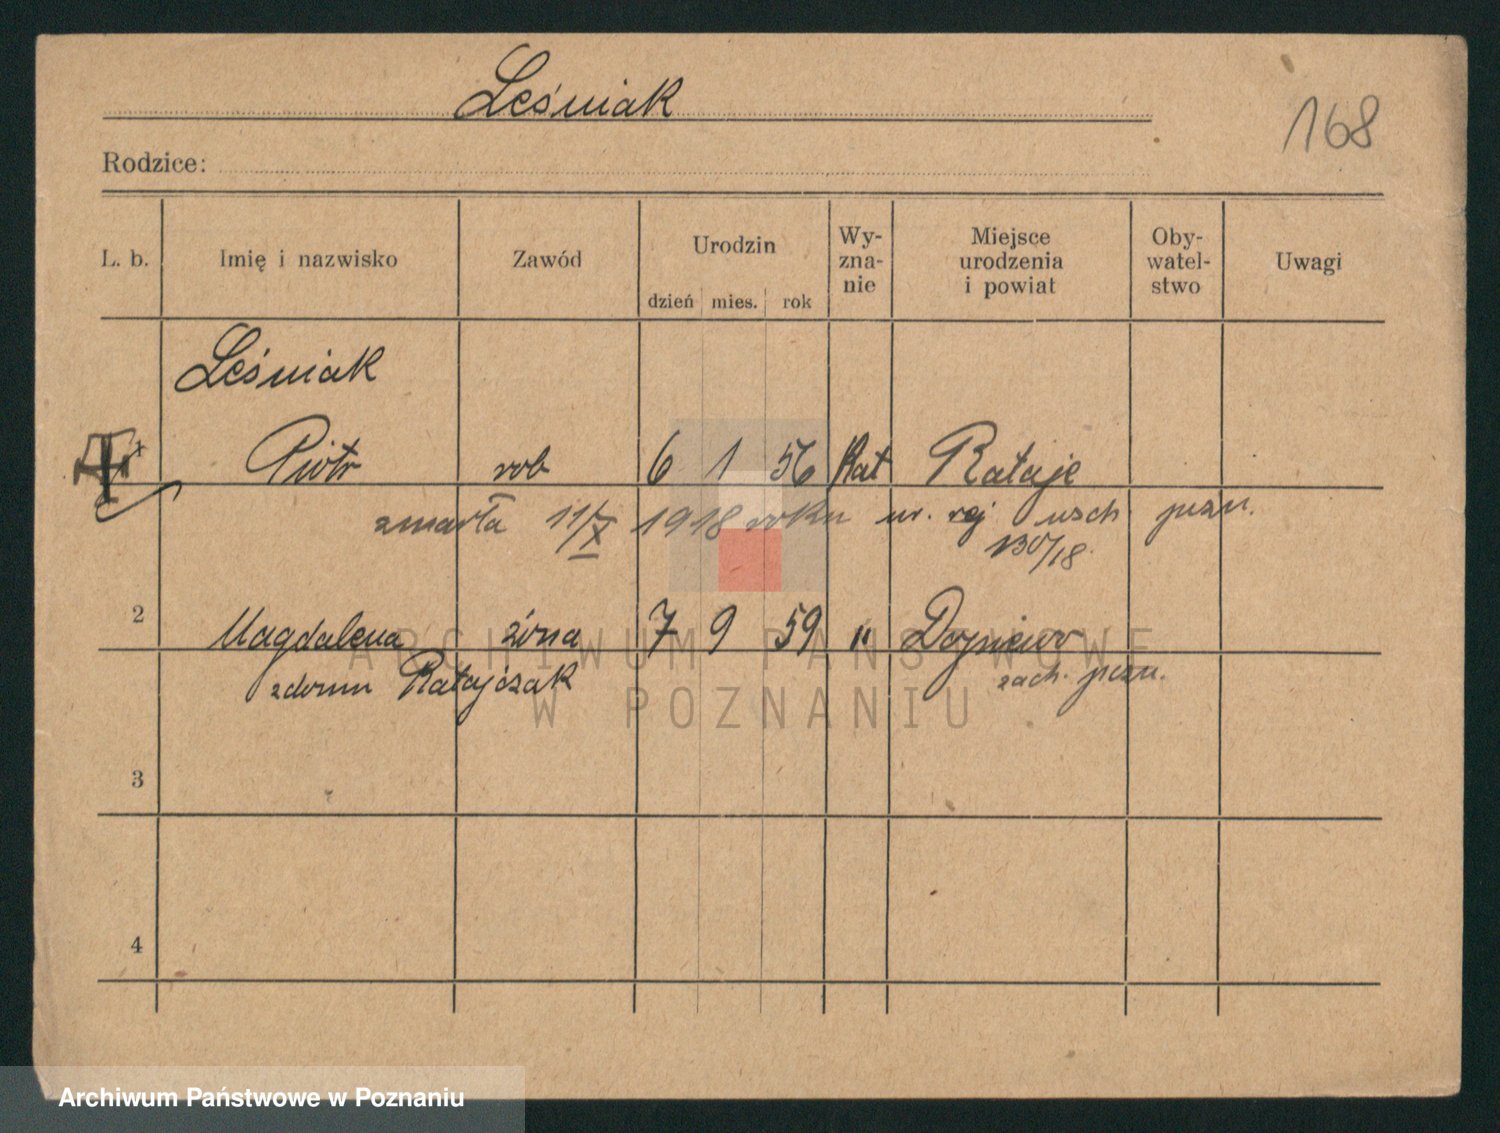 Leśniak
168
Rodzice:
L. b. Imię i nazwisko Zawód Urodzin dzień mies. rok Wy-zna-nie Miejsce urodzenia i powiat Oby-watel-stwo Uwagi
Leśniak
Piotr rob 6 1 56 Kat Rataje
zmarła 11/X 1918 roku nr. rej wsch pozn.
130/18.
2 Magdalena żona 7 9 59 "
zdomu Ratajczak zach. pozn.
3
4
ARCHIWUM PAŃSTWOWE
W POZNANIU
Archiwum Państwowe w Poznaniu